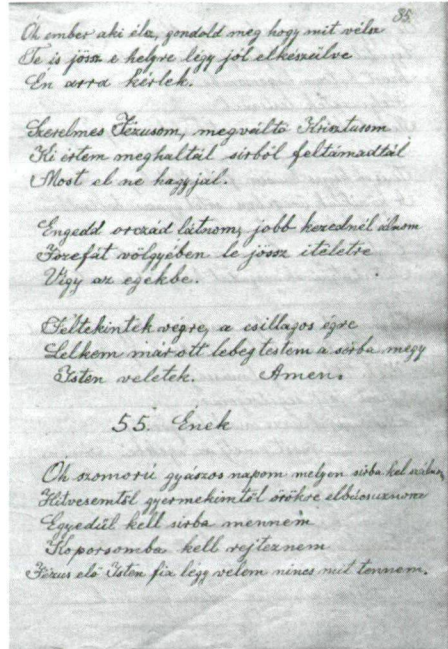 35.
Óh ember aki élsz, gondold meg hogy mit vélsz
Te is jössz e helyre légy jól elkészülve
Én arra kérlek.
Szerelmes Jézusom, megváltó Krisztusom
Ki értem meghaltál sirból feltámadtál
Most el ne hagyjál.
Engedd orczád látnom, jobb kezednél álnom
Jozefát völgyében le jössz itéletre
Vigy az egekbe.
Feltekintek végre, a csillagos égre
Lelkem már ott lebeg testem a sirba megy
Isten veletek. Amen.
55. Ének
Óh szomorú gyászos napom melyen sirba kel szálnom
Hitvesemtől gyermekimtől örökre elbúcsuznom
Egyedűl kell sirba mennem
Koporsomba kell rejteznem
Jézus élő Isten fia légy velem nincs mit tennem.